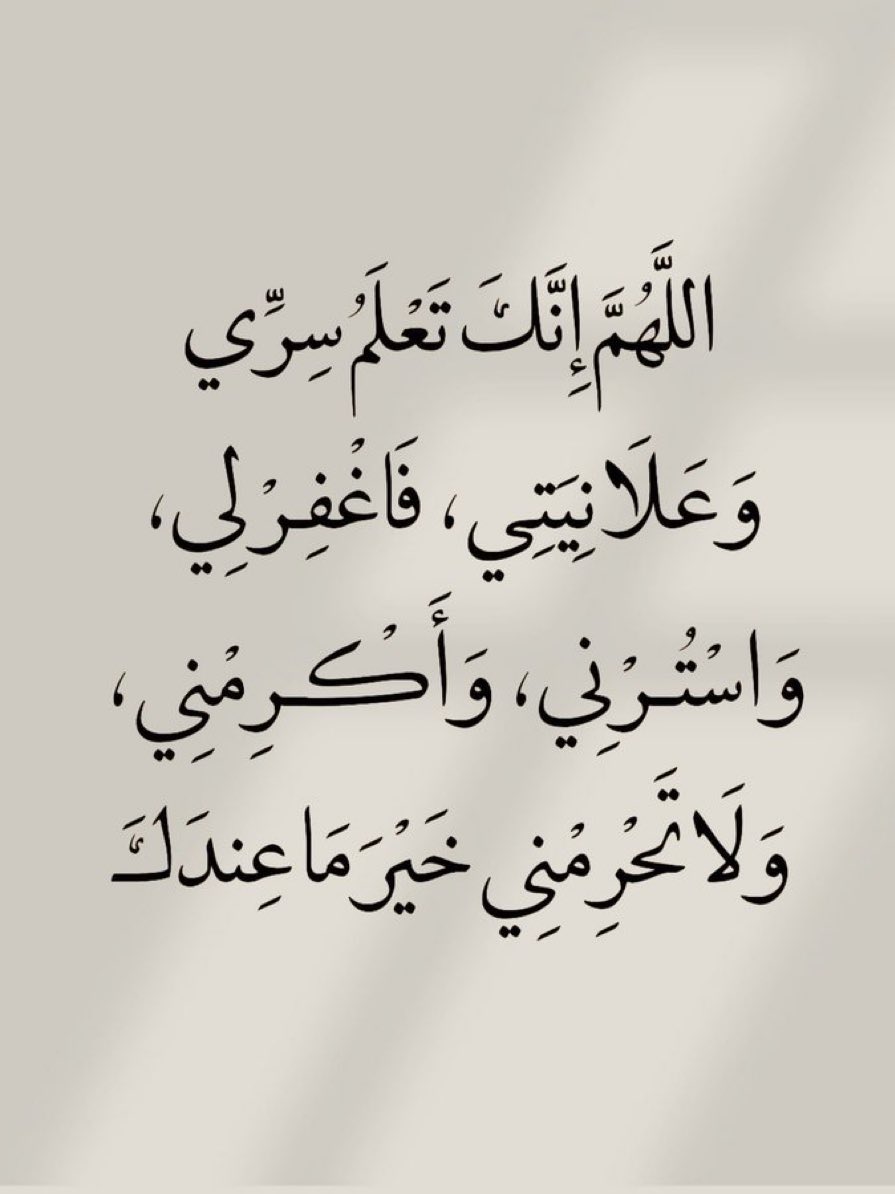 اللَّهُمَّ إِنَّكَ تَعْلَمُ سِرِّي
وَعَلَانِيَتِي، فَاغْفِرْ لِي،
وَاسْتُرْنِي، وَأَكْرِمْنِي،
وَلَا تَحْرِمْنِي خَيْرَ مَا عِندَكَ